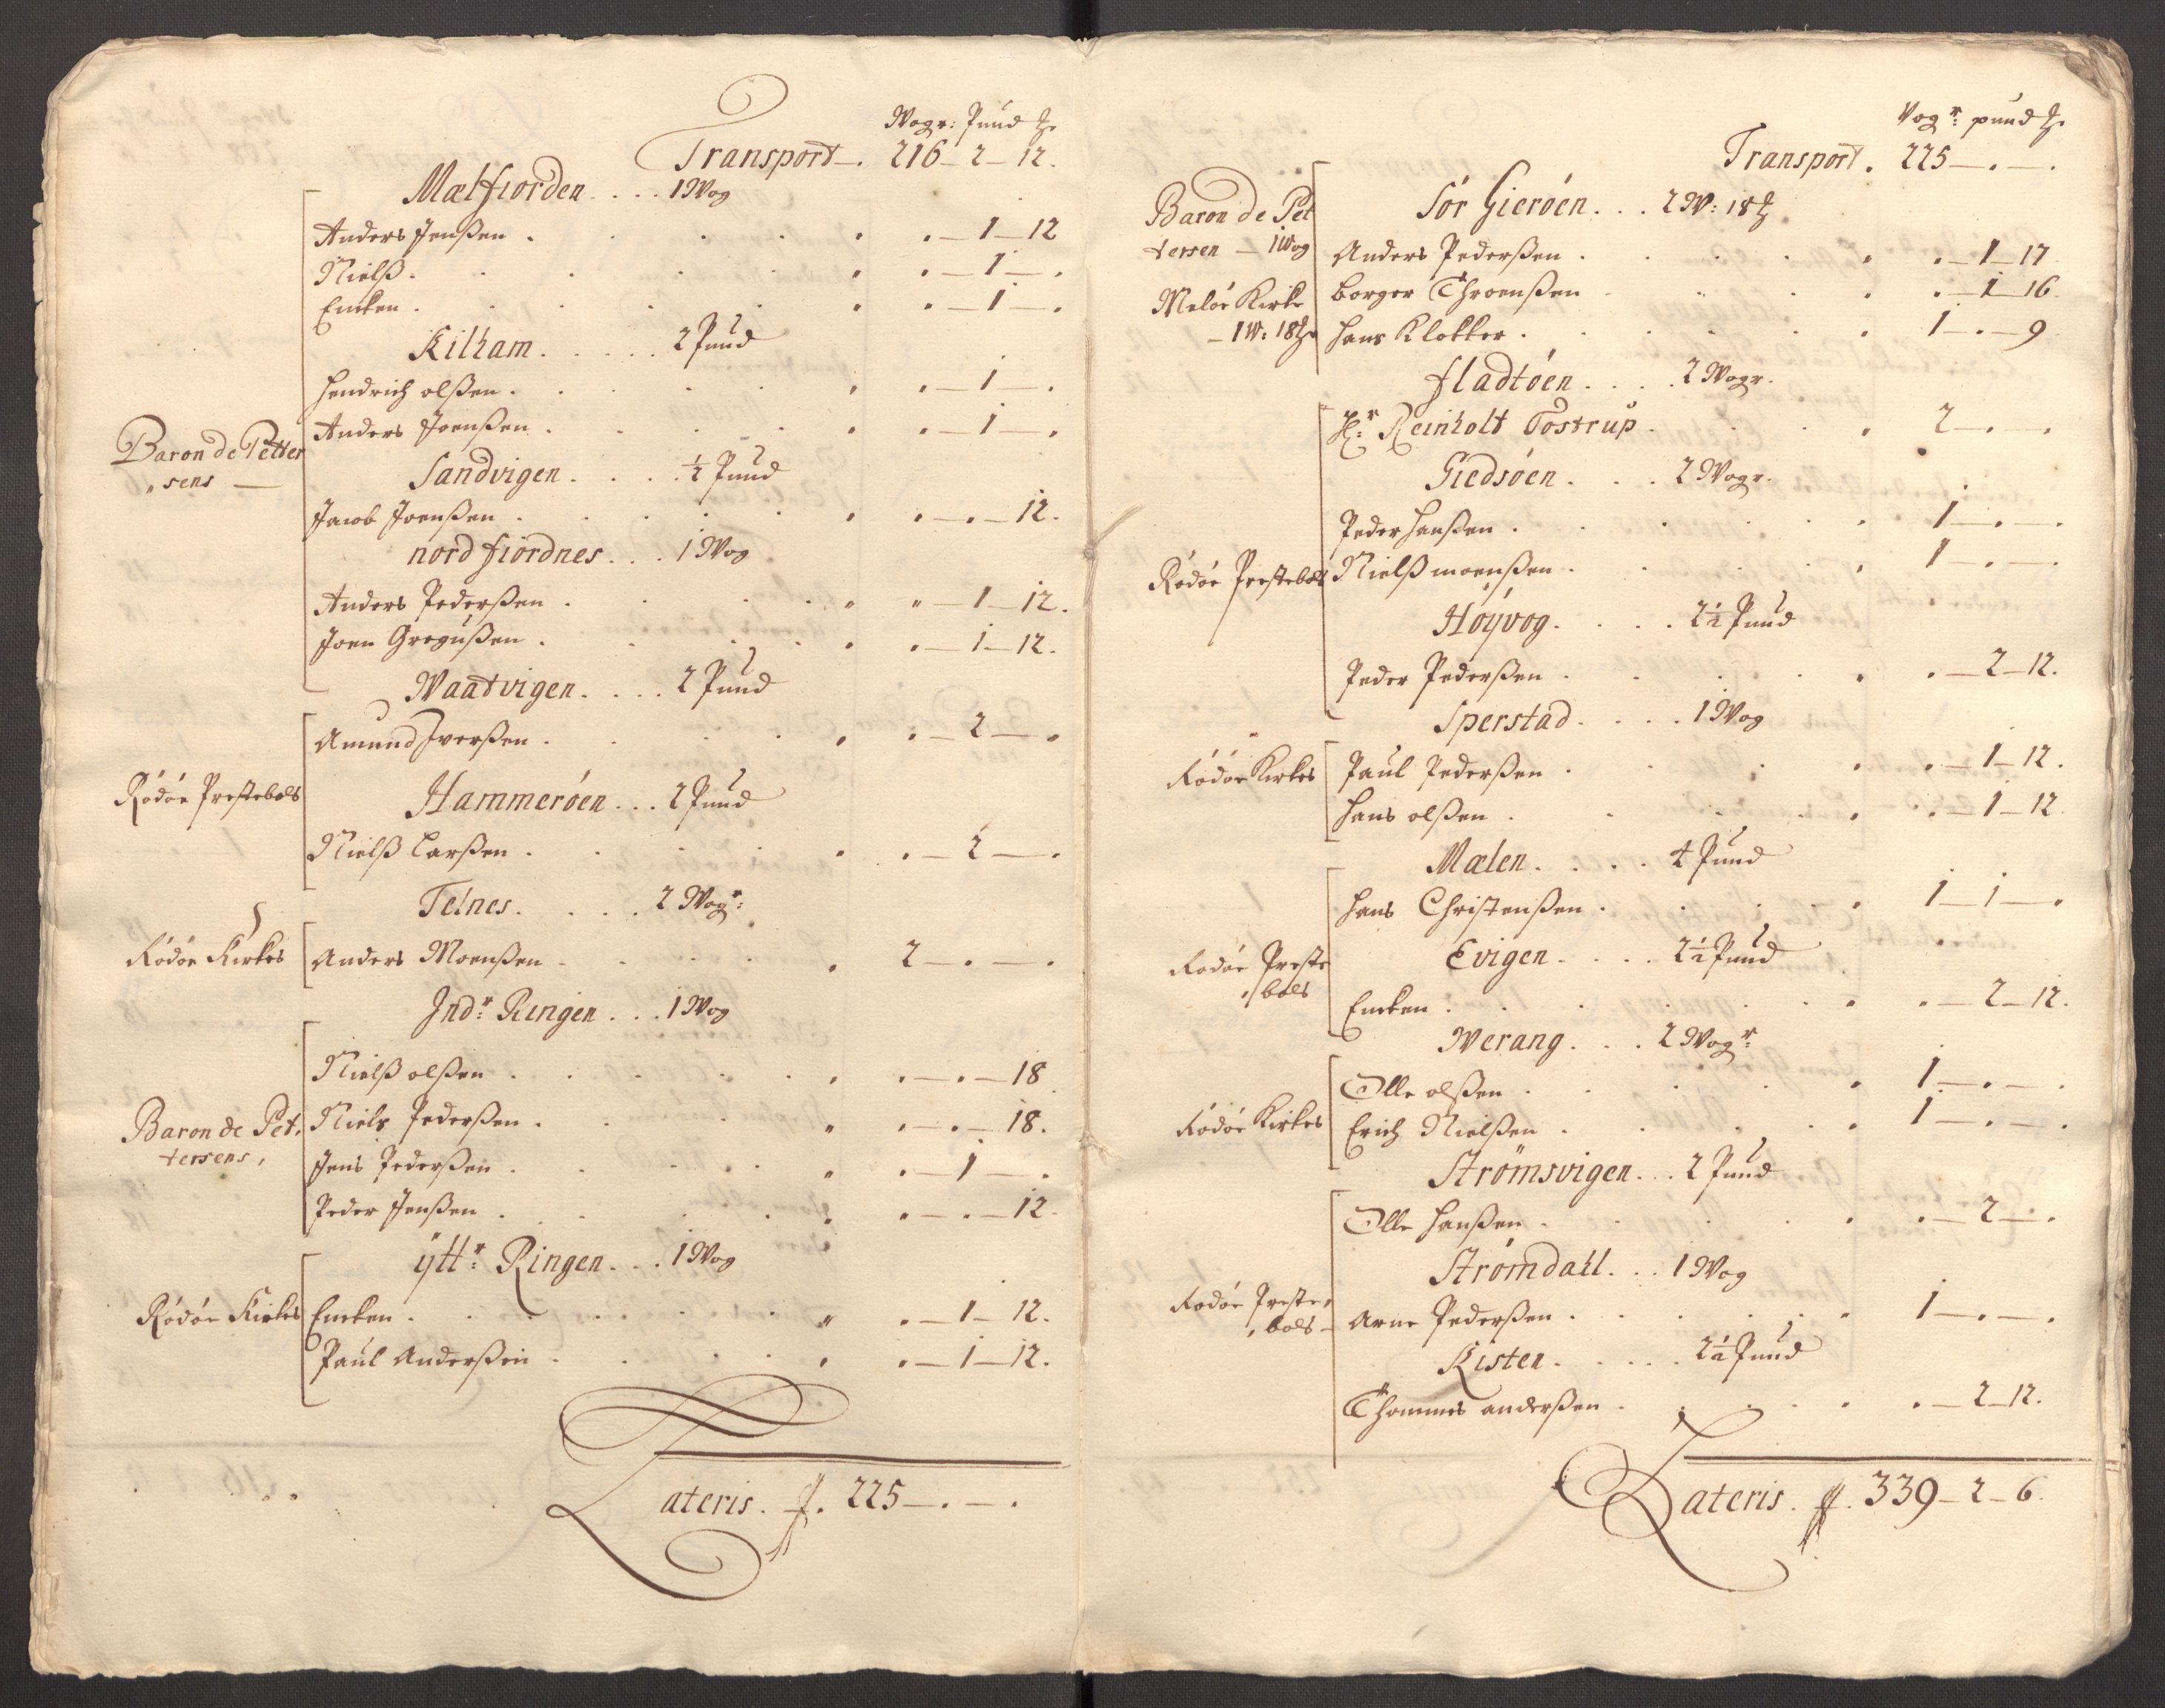 Wogr: Pund ℔
Transport. 216 – 2 – 12.
Mælfiorden . . . . 1 Wog
Anders Jenßen . . . . . – 1 – 12
Nielß . . . . . – 1 – .
Encken . . . . . – 1 – .
Kilham . . . . . 2 Pund
Hendrich olßen . . . . . – 1 – .
Anders Joenßen . . . . . – 1 – .
Baron de Petter
sens —
Sandvigen . . . . ½ Pund
Jacob Joenßen . . . . . – . – 12.
nord fiordnes . . . 1 Wog
Anders Pederßen . . . . . – 1 – 12.
Joen Gregußen . . . . . – 1 – 12.
Waatvigen . . . . 2 Pund
Amund Iverßen . . . . . – 2 – .
Rödöe Prestebols
Hammeröen . . . 2 Pund
Nielß Larßen . . . . . – 2 – .
Telnes . . . . 2 Wogr:
Rödöe Kirkes
Anders Moenßen . . . . . 2 – . – .
Indr: Ringen . . . 1 Wog
Nielß olßen . . . . . – . – 18
Baron de Pet-
tersens,
Niels Pederßen . . . . . – . – 18.
Jens Pederßen . . . . . – 1 – .
Peder Jenßen . . . . . – . – 12.
ÿttr: Ringen . . . 1 Wog
Rödöe Kirkes
Encken . . . . . – 1 – 12.
Paul Anderßen . . . . . – 1 – 12.
Lateris . ff. 225 – . – .
Vogr: pund ℔
Transport . 225 – . – .
Baron de Pet
tersen – 1 Wog
Sör Gieröen . . . 2 W: 18 ℔
Anders Pederßen . . . . . – 1 – 17
Melöe Kirke
– 1 W: 18 ℔
Borger Throenßen . . . . – 1 – 16.
Hans Klokker . . . . . 1 – . – 9
fladtöen . . . . 2 Wogr.
Hr: Reinholt Tostrup . . . . 2 – . – .
Giedsöen . . . 2 Wogr.
Peder Hanßen . . . . . 1 – . – .
Rödöe Prestebols
Nielß moenßen . . . . . 1 – . – .
Höÿvog . . . . 2½ Pund
Peder Pederßen . . . . . – 2 – 12.
Sperstad . . . . 1 Wog
Rödöe Kirkes
Paul Pederßen . . . . . – 1 – 12.
Hans olßen . . . . . – 1 – 12.
Mælen . . . . 4 Pund
Hans Christenßen . . . . 1 – 1 – .
Rödöe Preste
bols
Evigen . . . . 2½ Pund
Encken . . . . . – 2 – 12.
Werang . . . 2 Wogr:
Olle olßen . . . . . 1 – . – .
Rödöe Kirkes
Erich Nielßen . . . . . 1 – . – .
Strömsvigen . . . 2 Pund
Olle Hanßen . . . . . – 2 – .
Strömdall . . . 1 Wog
Rödöe Preste
bols –
Arne Pederßen . . . . . 1 – . – .
Kisten . . . . . 2½ Pund
Thommes anderßen . . . . . – 2 – 12.
Lateris . ff. 339 – 2 – 6.